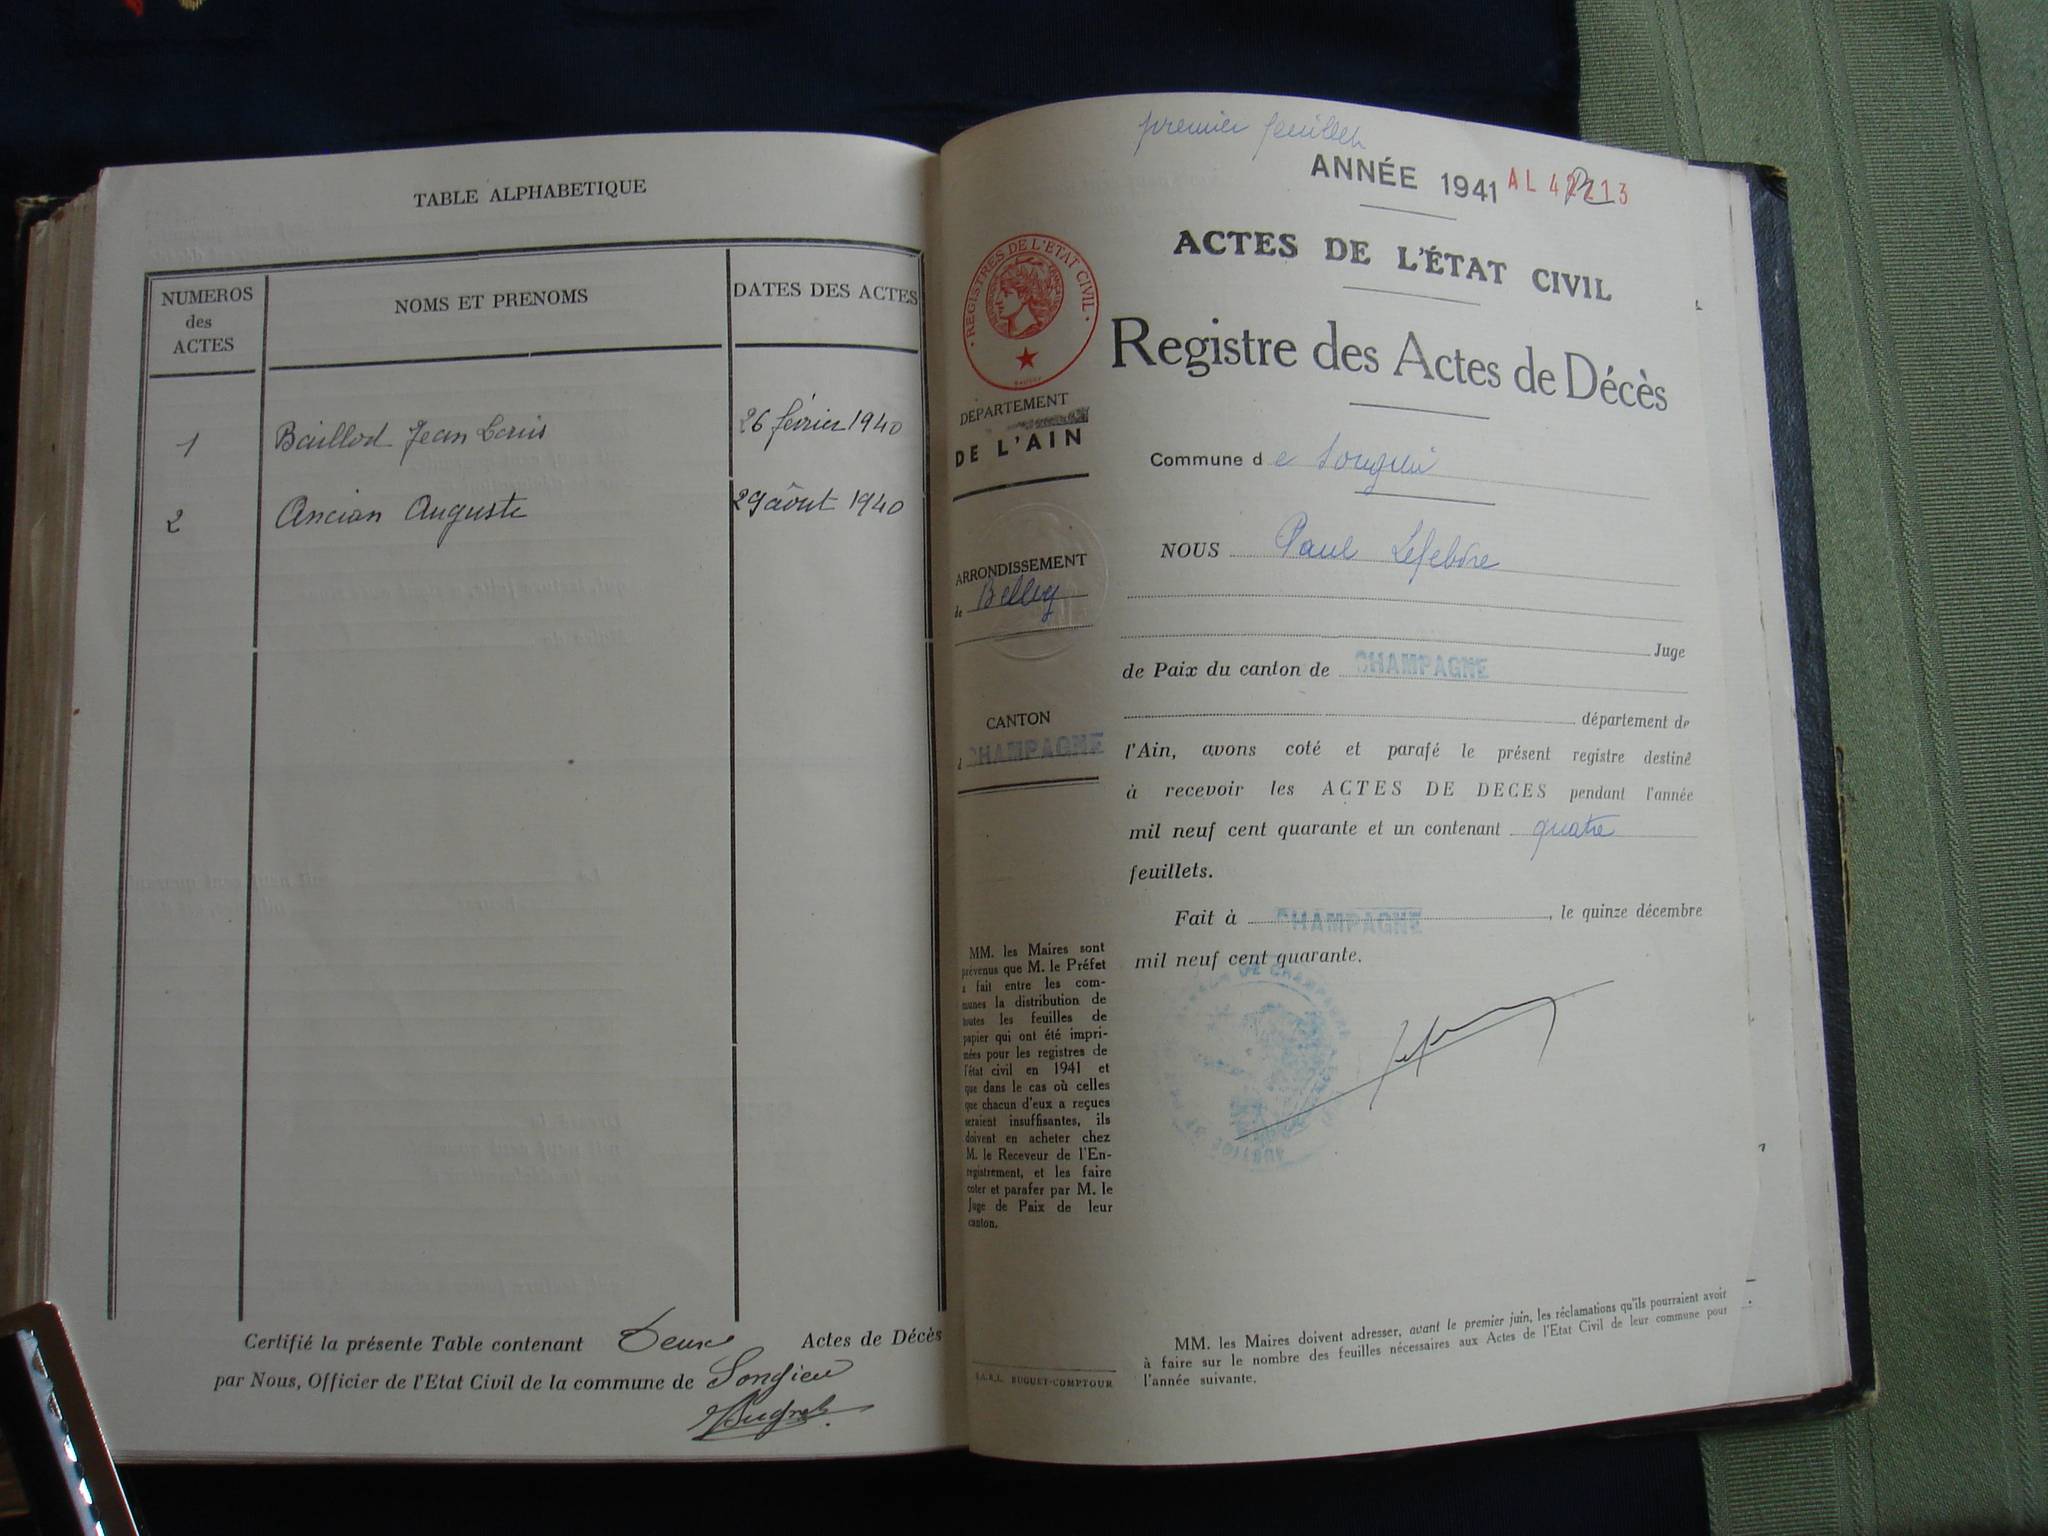 TABLE ALPHABETIQUE
NUMEROS
des
ACTES
NOMS ET PRENOMS
DATES DES ACTES
1 Baillod Jean Louis 26 février 1940
2 Ancian Auguste 29 août 1940
Certifié la présente Table contenant Deux Actes de Décès
par Nous, Officier de l'Etat Civil de la commune de Songieu
premier feuillet
ANNÉE 1941 AL 42213
ACTES DE L'ÉTAT CIVIL
Registre des Actes de Décès
REGISTRES DE L'ETAT CIVIL
DÉPARTEMENT
DE L'AIN
ARRONDISSEMENT
de Belley
CANTON
CHAMPAGNE
MM. les Maires sont
prévenus que M. le Préfet
a fait entre les com-
munes la distribution de
toutes les feuilles de
papier qui ont été impri-
mées pour les registres de
l'état civil en 1941 et
que dans le cas où celles
que chacun d'eux a reçues
seraient insuffisantes, ils
doivent en acheter chez
M. le Receveur de l'En-
registrement, et les faire
coter et parafer par M. le
Juge de Paix de leur
canton.
S.A.R.L. BUGUET-COMPTOUR
Commune de Songieu
NOUS Paul Lefebvre
Juge
de Paix du canton de CHAMPAGNE
département de
l'Ain, avons coté et parafé le présent registre destiné
à recevoir les ACTES DE DECES pendant l'année
mil neuf cent quarante et un contenant quatre
feuillets.
Fait à CHAMPAGNE, le quinze décembre
mil neuf cent quarante.
MM. les Maires doivent adresser, avant le premier juin, les réclamations qu'ils pourraient avoir
à faire sur le nombre des feuilles nécessaires aux Actes de l'Etat Civil de leur commune pour
l'année suivante.